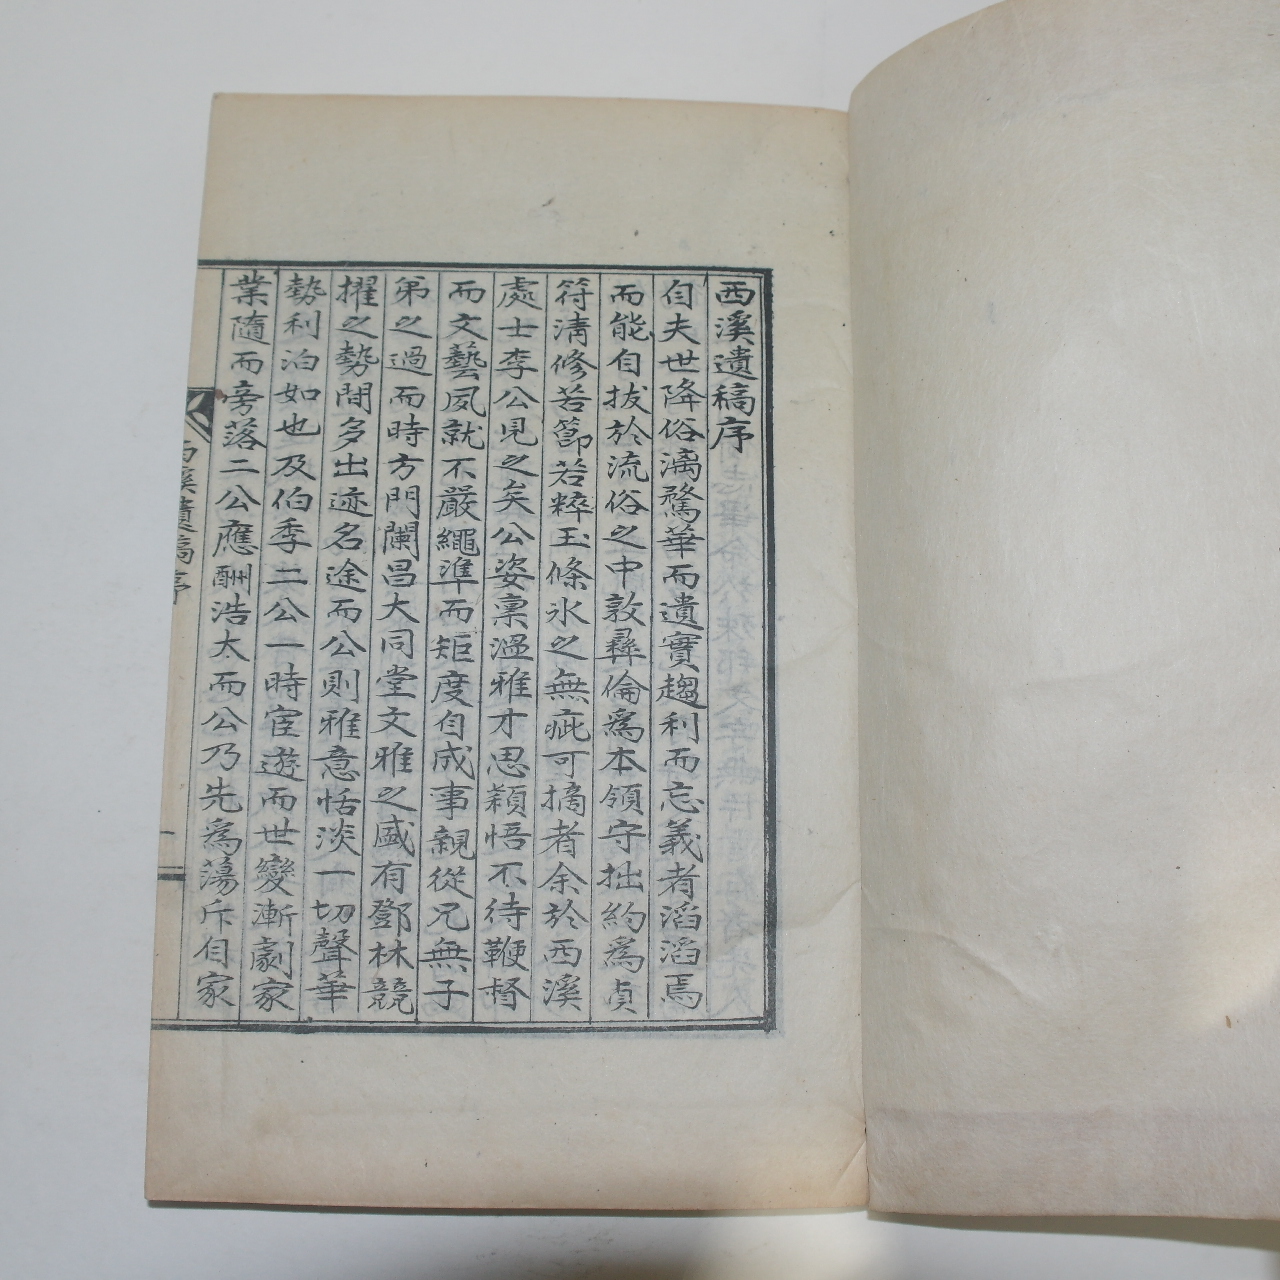 西溪遺稿序
自夫世降俗漓騖華而遺實趨利而忘義者滔滔焉
而能自拔於流俗之中敦彝倫爲本領守拙約爲貞
符淸修苦節若粹玉條氷之無疵可摘者余於西溪
處士李公見之矣公姿稟溫雅才思穎悟不待鞭督
而文藝夙就不嚴繩準而矩度自成事親從兄無子
弟之過而時方門闌昌大同堂文雅之盛有鄧林競
擢之勢間多出迹名途而公則雅意恬淡一切聲華
勢利泊如也及伯季二公一時宦遊而世變漸劇家
業隨而旁落二公應酬浩大而公乃先爲蕩斥自家
西溪遺稿序
一